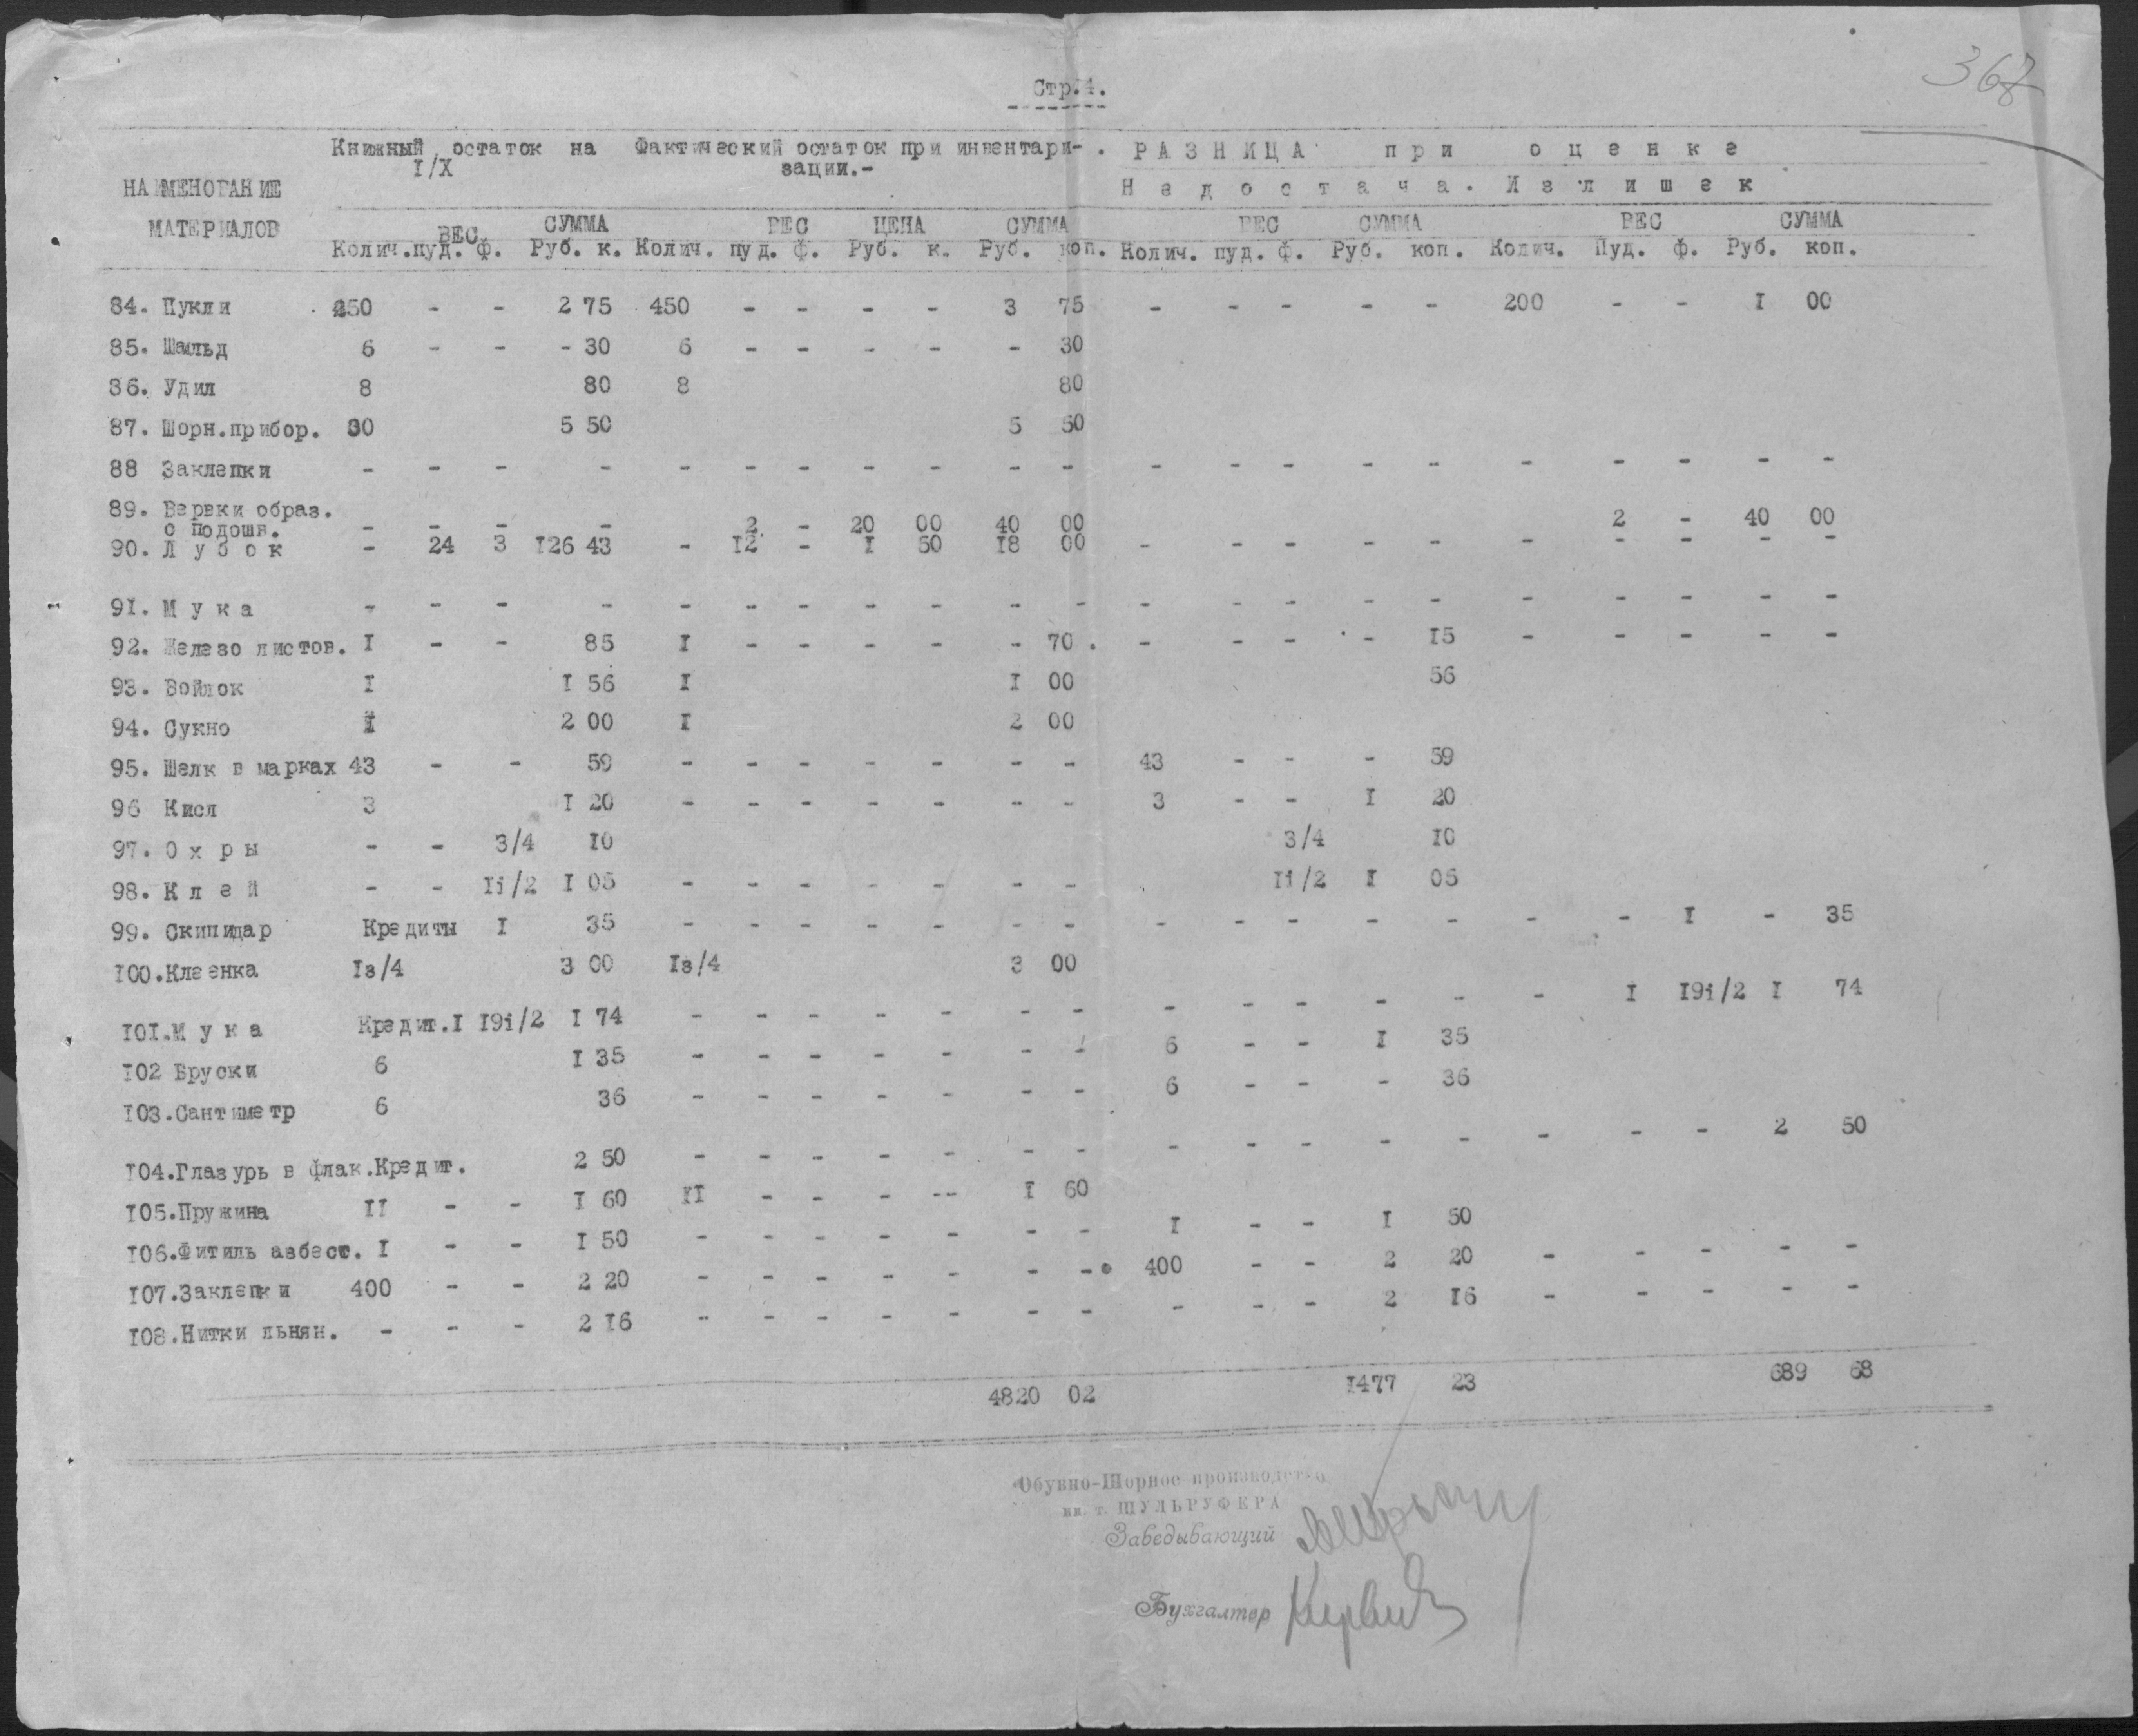 367
Стр.4.
Книжный остаток на Фактический остаток при инвентари- . РАЗНИЦА при оценке
I/X зации.-
НАИМЕНОВАНИЕ Недостача. Излишек
МАТЕРИАЛОВ ВЕС СУММА ВЕС ЦЕНА СУММА ВЕС СУММА ВЕС СУММА
Колич. пуд. ф. Руб. к. Колич. пуд. ф. Руб. к. Руб. коп. Колич. пуд. ф. Руб. коп. Колич. Пуд. ф. Руб. коп.
84. Пукли 250 - - 2 75 450 - - - - 3 75 - - - - - 200 - - I 00
85. Шальд 6 - - - 30 6 - - - - - 30
86. Удил 8 80 8 80
87. Шорн.прибор. 30 5 50 5 50
88 Заклепки - - - - - - - - - - - - - - - - - - - - -
89. Вервки образ.
с подошв. - - - - 2 - 20 00 40 00 2 - 40 00
90. Л у б о к - 24 3 I26 43 - I2 - I 50 I8 00 - - - - - - - - - -
9I. М у к а - - - - - - - - - - - - - - - - - - - - -
92. Железо листов. I - - 85 I - - - - - 70 . - - - - I5 - - - - -
93. Войлок I I 56 I I 00 56
94. Сукно I 2 00 I 2 00
95. Шелк в марках 43 - - 59 - - - - - - - 43 - - - 59
96 Кисл 3 I 20 - - - - - - - 3 - - I 20
97. О х р ы - - 3/4 I0 3/4 I0
98. К л е й - - Ii/2 I 05 - - - - - - - Ii/2 I 05
99. Скипидар Кредиты I 35 - - - - - - - - - - - - - - I - 35
I00.Клеенка Iз/4 3 00 Iз/4 3 00
I0I.М у к а Кредит.I I9i/2 I 74 - - - - - - - - - - - - - I I9i/2 I 74
I02 Бруски 6 I 35 - - - - - - - 6 - - I 35
I03.Сантиметр 6 36 - - - - - - - 6 - - - 36
I04.Глазурь в флак.Кредит. 2 50 - - - - - - - - - - - - - - - 2 50
I05.Пружина II - - I 60 II - - - -- I 60
I06.Фитиль азбест. I - - I 50 - - - - - - - I - - I 50
I07.Заклепки 400 - - 2 20 - - - - - - - 400 - - 2 20 - - - - -
I08.Нитки льнян. - - - 2 I6 - - - - - - - - - - 2 I6 - - - - -
4820 02 I477 23 689 68
Обувно-Шорное производство
им. т. ШУЛЬРУФЕРА
Заведывающий
Бухгалтер